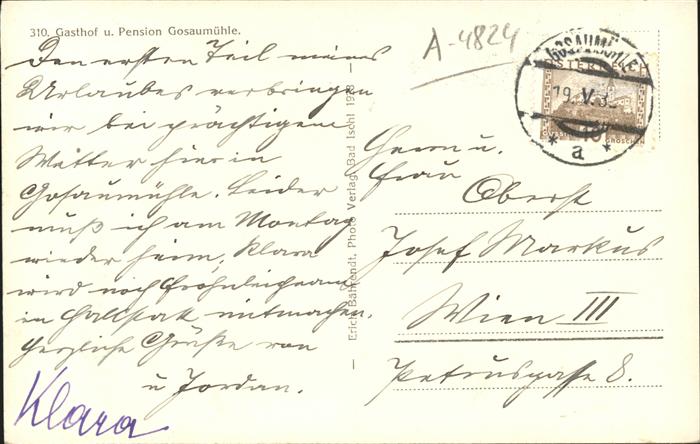 310. Gasthof u. Pension Gosaumühle.
Den ersten Teil meines
Urlaubes verbringen
wir bei prächtigem
Wetter hier in
Gosaumühle. Leider
muß ich am Montag
wieder heim, Klara
wird noch Fronleichnam
in Hallstatt mitmachen.
Herzliche Grüße von
u Jordan.
Klara
Erich Bährendt, Photo Verlag, Bad Ischl
A-4824
GOSAUMÜHLE
19.V.3
* a *
ÖSTERREICH
10
GROSCHEN
Herrn u.
Frau
Oberst
Josef Markus
Wien III
Petrusgasse 8.